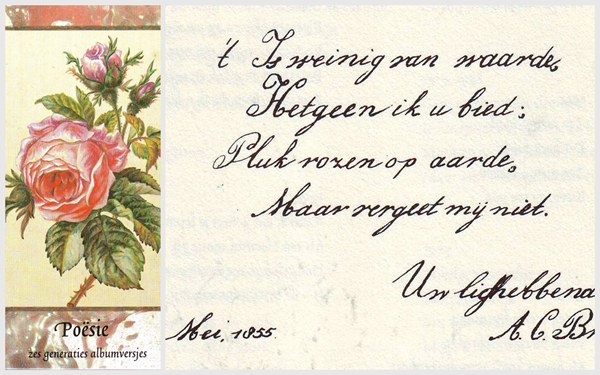 't Is weinig van waarde,
Hetgeen ik u bied;
Pluk rozen op aarde,
Maar vergeet mij niet.
Uw liefhebbend
A. C. B
Mei, 1855.
Poësie
zes generaties albumversjes